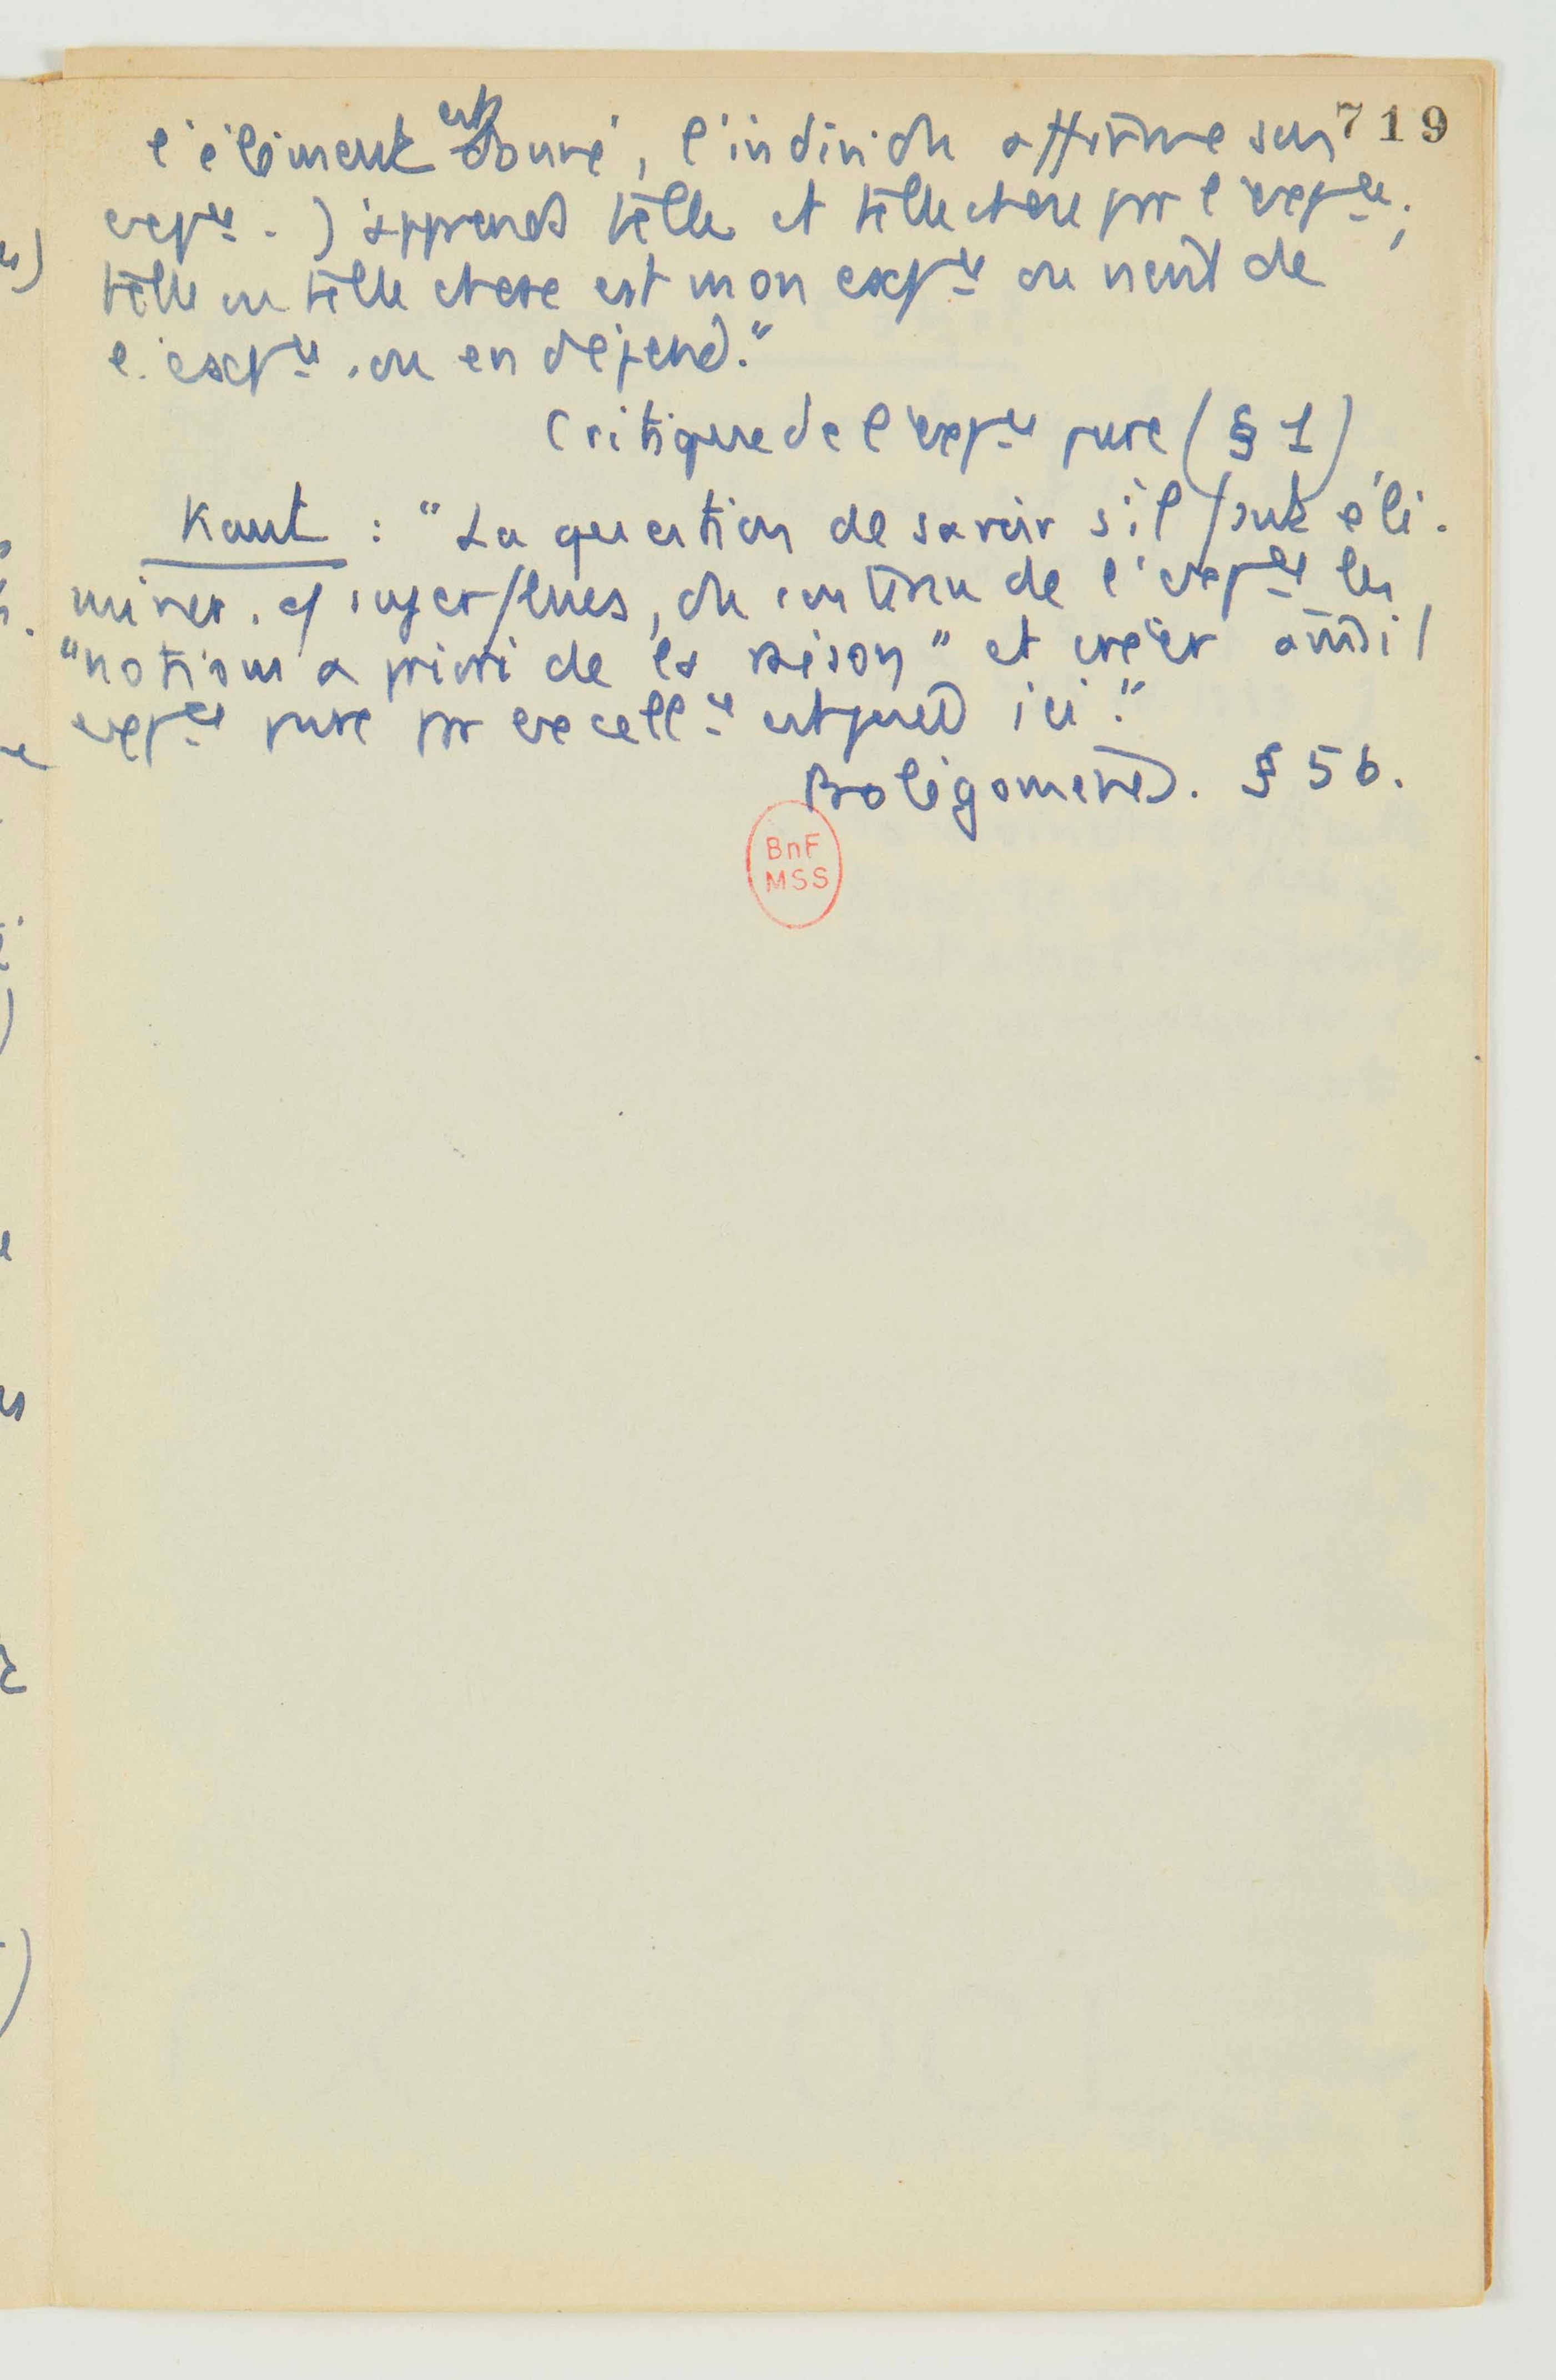 719
l'élément est donné, l'individu affirme son
expce. J'apprends telle et telle chose par l'expce ;
telle ou telle chose est mon expce ou vient de
l'expce, ou en dépend."
Critique de l'expce pure (§ 1)
Kant : "La question de savoir s'il faut éli-
miner, superflues, du contenu de l'expce les
"notions a priori de la raison" et créer ainsi l
expce pure par excellce est posée ici."
Prolégomènes. § 56.
BnF
MSS